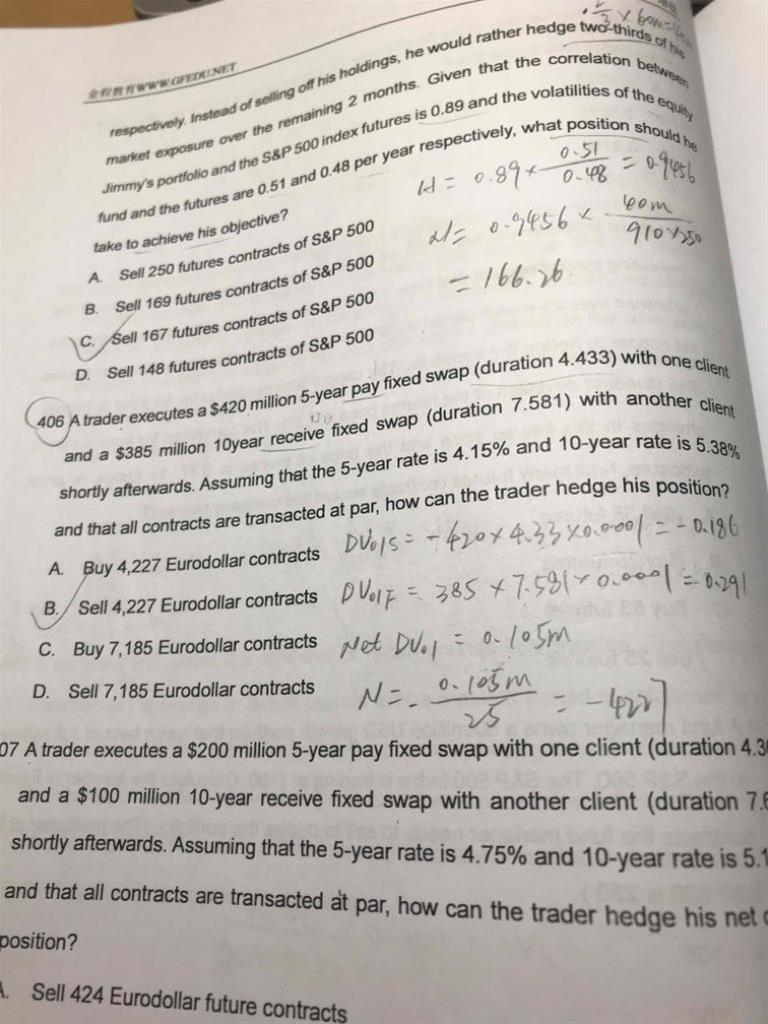 2/3 × 60m = 40
WWW.GFEDU.NET
respectively. Instead of selling off his holdings, he would rather hedge two-thirds of his
market exposure over the remaining 2 months. Given that the correlation between
Jimmy's portfolio and the S&P 500 index futures is 0.89 and the volatilities of the equity
fund and the futures are 0.51 and 0.48 per year respectively, what position should he
take to achieve his objective?
H = 0.89 × 0.51 / 0.48 = 0.9456
A. Sell 250 futures contracts of S&P 500
N = 0.9456 × 40m / 910×250
B. Sell 169 futures contracts of S&P 500
= 166.26.
C. Sell 167 futures contracts of S&P 500
D. Sell 148 futures contracts of S&P 500
406 A trader executes a $420 million 5-year pay fixed swap (duration 4.433) with one client
and a $385 million 10year receive fixed swap (duration 7.581) with another client
shortly afterwards. Assuming that the 5-year rate is 4.15% and 10-year rate is 5.38%
and that all contracts are transacted at par, how can the trader hedge his position?
A. Buy 4,227 Eurodollar contracts
DV01S = -420 × 4.33 × 0.0001 = -0.186
B. Sell 4,227 Eurodollar contracts
DV01F = 385 × 7.581 × 0.0001 = 0.291
C. Buy 7,185 Eurodollar contracts
Net DV01 = 0.105m
D. Sell 7,185 Eurodollar contracts
N = - 0.105m / 25 = -4227
07 A trader executes a $200 million 5-year pay fixed swap with one client (duration 4.3
and a $100 million 10-year receive fixed swap with another client (duration 7.6
shortly afterwards. Assuming that the 5-year rate is 4.75% and 10-year rate is 5.1
and that all contracts are transacted at par, how can the trader hedge his net
position?
A. Sell 424 Eurodollar future contracts